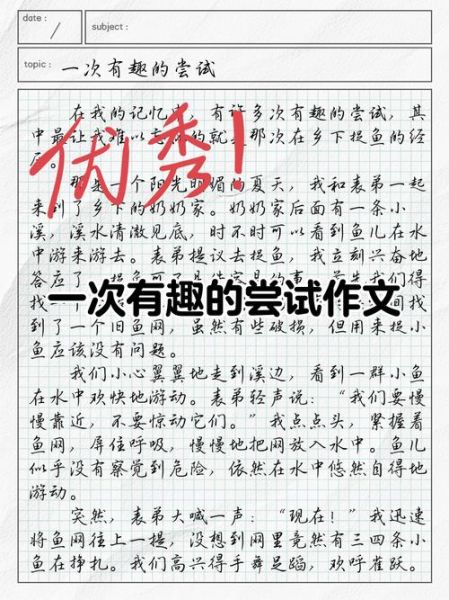 date :
subject :
topic : 一次有趣的尝试
在我的记忆中，有许多次有趣的尝试，其
中最让我难以忘的就是那次在乡下捉鱼的经
历。
优秀！
那是一个阳光明媚的夏天，我和表弟一起
来到了乡下的奶奶家。奶奶家后面有一条小
溪，溪水清澈见底，时不时可以看到鱼儿在水
中游来游去。表弟提议去捉鱼，我立刻兴奋地
答应了
我们得
一次有趣的尝试作文
找
间找
到了一个旧鱼网，虽然有些破损，但用来捉小
鱼应该没有问题。
我们小心翼翼地走到溪边，看到一群小鱼
在水中欢快地游动。表弟轻声说：“我们要慢
慢靠近，不要惊动它们。”我点点头，紧握着
鱼网，屏住呼吸，慢慢地把网放入水中。鱼儿
似乎没有察觉到危险，依然在水中悠然自得地
游动。
突然，表弟大喊一声：“现在！”我迅速
将鱼网往上一提，没想到网里竟然有三四条小
鱼在挣扎。我们高兴得手舞足蹈，欢呼雀跃。